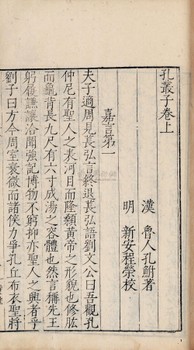 孔叢子卷上
漢　魯人孔鮒著
明　新安程榮校
嘉言第一
夫子適周見萇弘言終退萇弘語劉文公曰吾觀孔
仲尼有聖人之表河目而隆顙黃帝之形貌也修肱
而龜背長九尺有六寸成湯之容體也然言稱先王
躬履謙讓洽聞強記博物不窮抑亦聖人之興者乎
劉子曰方今周室衰微而諸侯力爭孔丘布衣聖將